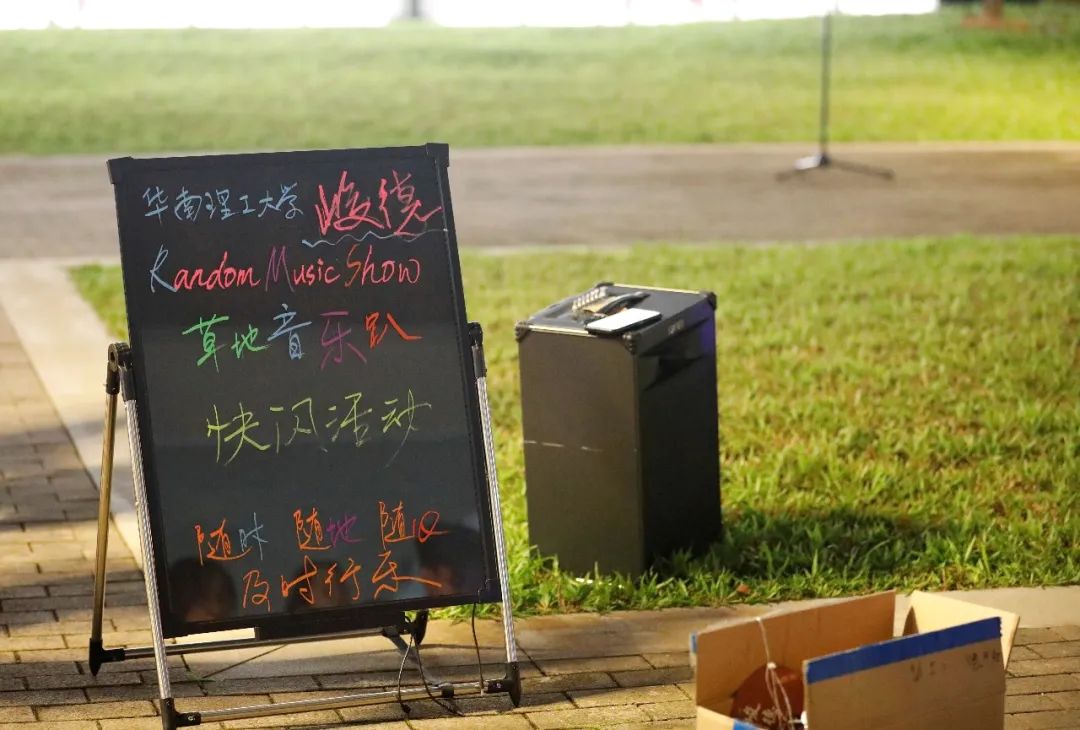 华南理工大学 峻德
Random Music Show
草地音乐趴
快闪活动
随时 随地 随心
及时行乐